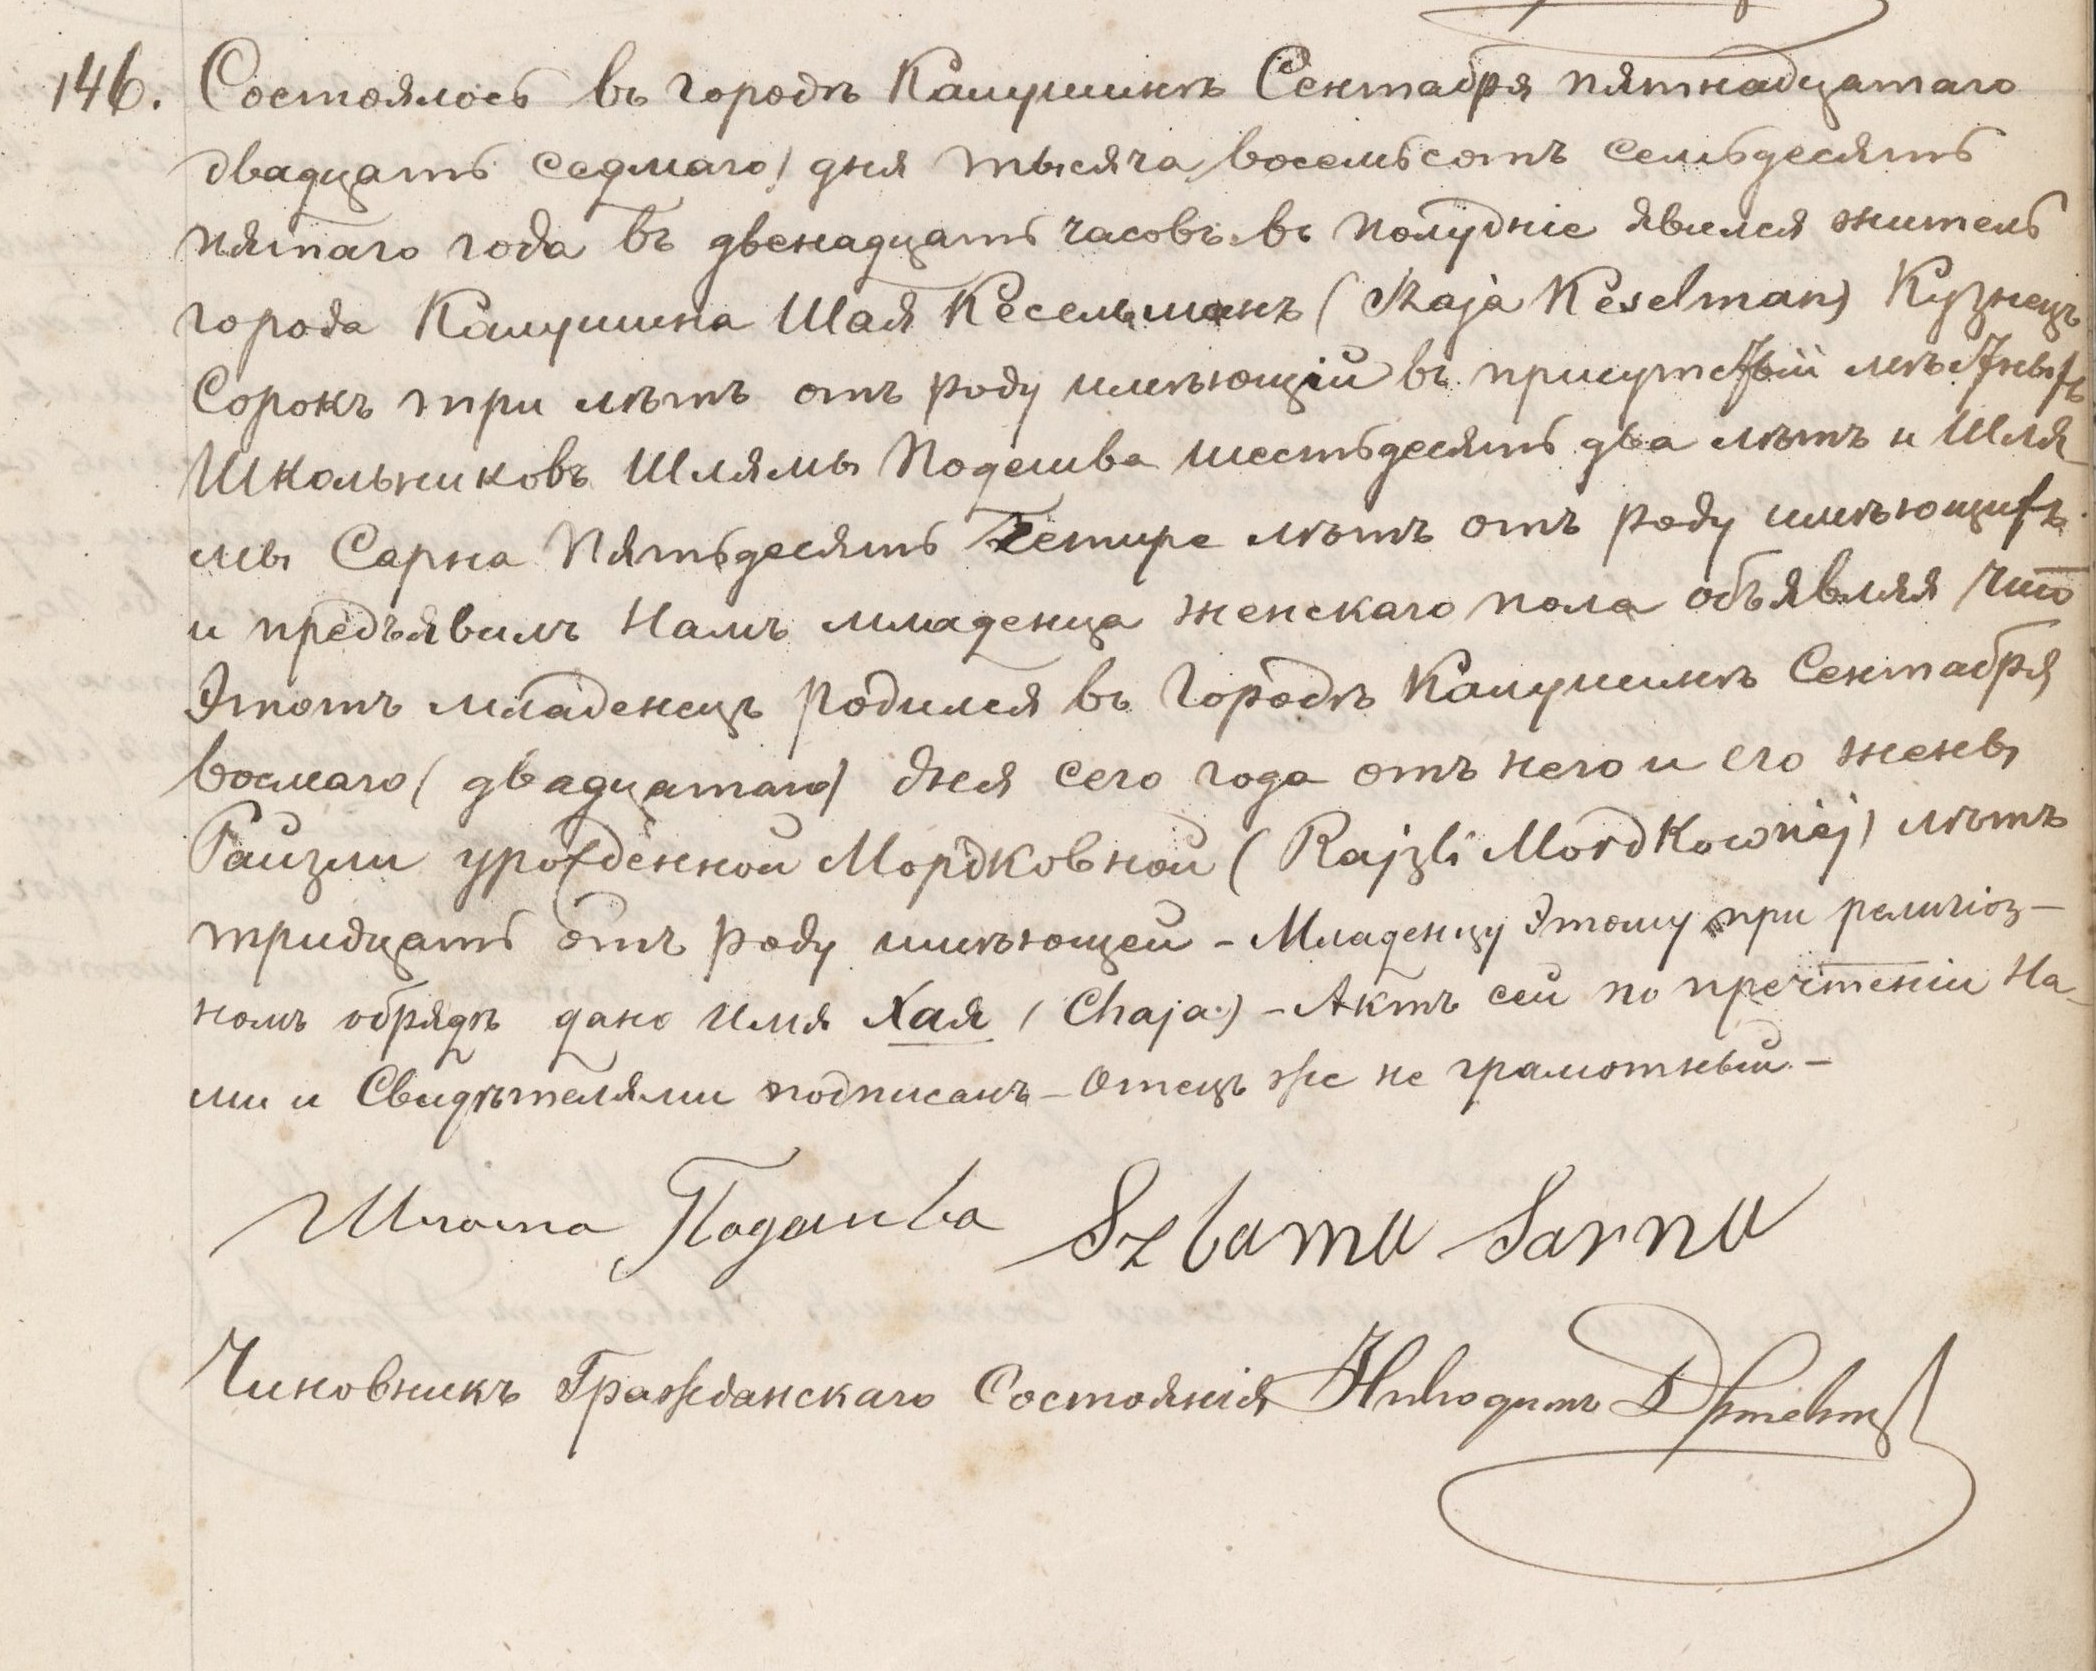 146. Состоялось въ городѣ Калушинѣ Сентабря пятнадцатаго
двадцать седмаго) дня тысяча восемьсотъ семьдесять
пятаго года въ двенадцать часовъ въ полудніе явился житель
города Калушина Шая Кесельманъ (Szaja Keselman) Кузнецъ
Сорокъ три лѣтъ отъ роду имѣющій въ присутствіи мѣстныхъ
Школьниковъ Шлямы Подешва шестьдесять два лѣтъ и Шля-
мы Сарна Пятьдесять Четире лѣтъ отъ роду имѣющихъ
и предъявилъ Намъ младенца женскаго пола объявляя что
Этотъ младенецъ родился въ Городѣ Калушинѣ Сентабря
восмаго (двадцатаго) дня сего года отъ него и его жены
Райзли урожденной Мордковной (Rajzli Mordkownéj) лѣтъ
тридцать отъ роду имѣющей – Младенцу Этому при религіоз-
номъ обрядѣ дано Имя Хая (Chaja) – Актъ сей по прочтеніи На-
ми и Свидѣтелями подписанъ – Отецъ же не грамотный –
Шлома Подешва Szlama Sarna
Чиновникъ Гражданскаго Состоянія Никодимъ